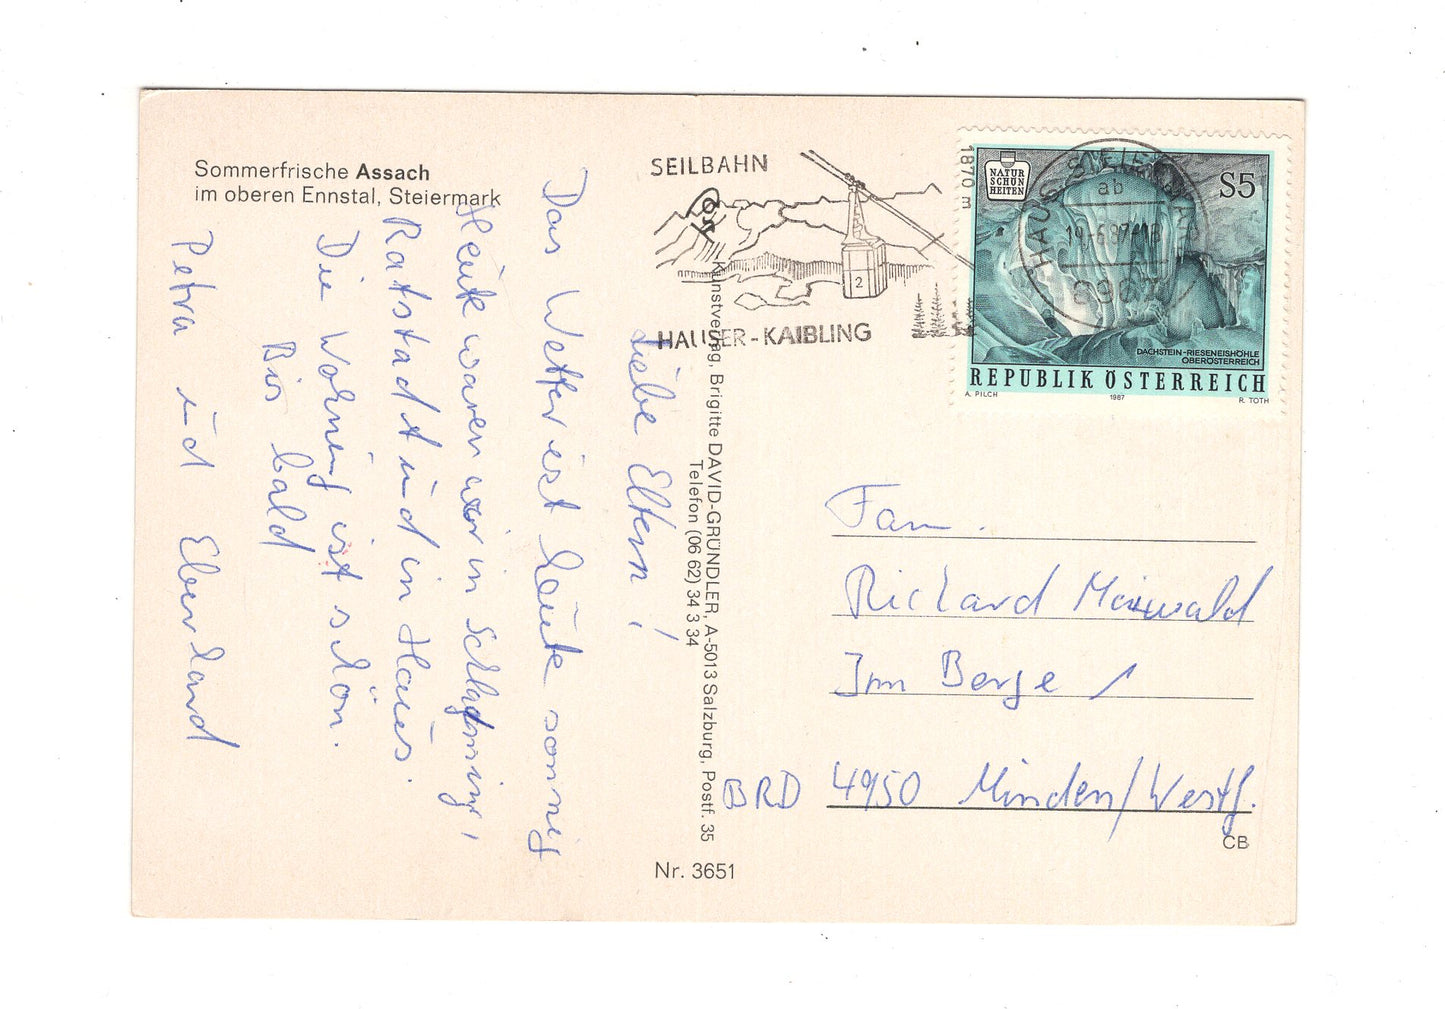 Sommerfrische Assach
im oberen Ennstal, Steiermark
Liebe Eltern!
Das Wetter ist heute sonnig
Heute waren wir in Schladming,
Ratstadt und in Haus.
Die Wohnung ist schön.
Bis bald
Petra und Eberhard
Kunstverlag, Brigitte DAVID-GRÜNDLER, A-5013 Salzburg, Postf. 35
Telefon (06 62) 34 3 34
Nr. 3651
SEILBAHN
2
HAUSER-KAIBLING
1870 m
HAUS STEIERMARK
ab
19.-6.87-18
8967
NATUR
SCHÖN
HEITEN
S5
DACHSTEIN-RIESENEISHÖHLE
OBERÖSTERREICH
REPUBLIK ÖSTERREICH
A. PILCH 1987 R. TOTH
Fam.
Richard Maiwald
Im Berge 1
BRD 4950 Minden/Westf.
CB